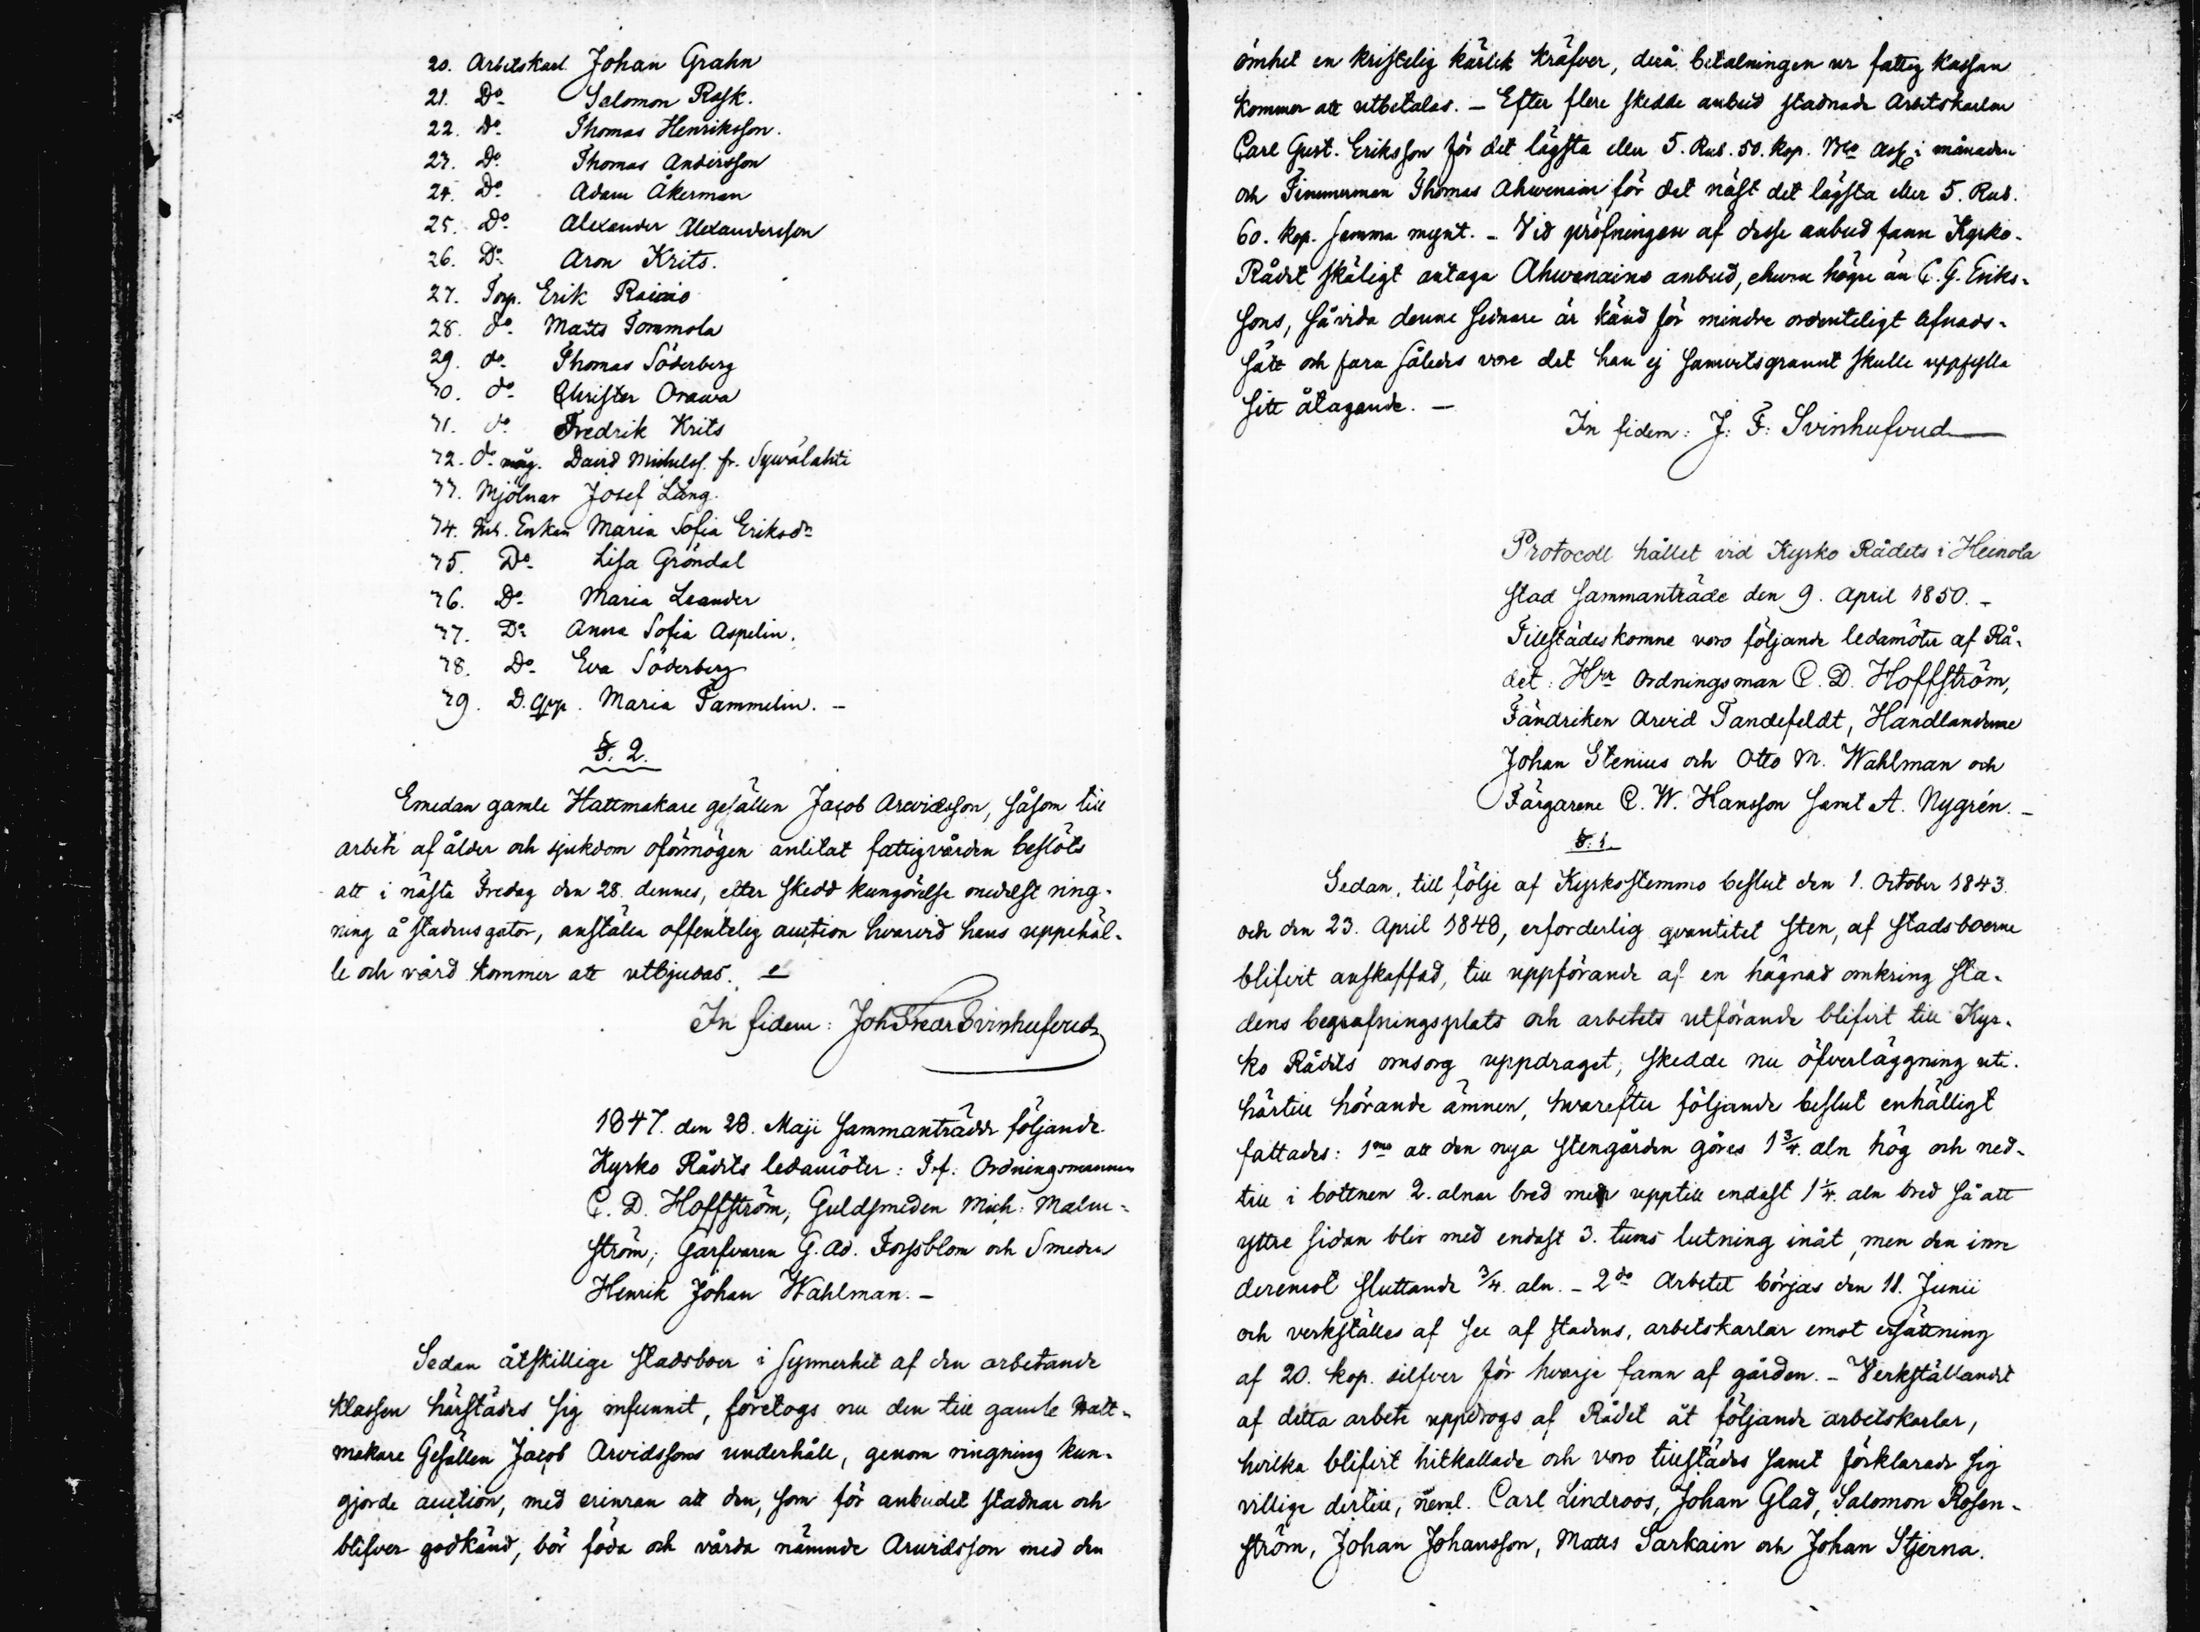 20. Arbetskarl. Johan Grahn
21. Do Salomon Rask.
22. Do Thomas Henriksson.
23. Do Thomas Andersson
24. Do Adam Åkerman
25. Do Alexander Alexandersson
26. Do Aron Krits.
27. Torp. Erik Raivio
28. do Matts Tommola
29. do Thomas Söderberg
30. do Christer Orawa
31. do Fredrik Krits
32. do måg. David Michelss. fr. Sywälahti
33. Mjölnar Josef Lång.
34. Enkan Maria Sofia Eriksdr
35. Do Lisa Gröndal
36. Do Maria Leander
37. Do Anna Sofia Aspelin.
38. Do Eva Söderberg
39. D. Maria Tammelin. -
§. 2.
Emedan gamle Hattmakare gesällen Jacob Arwidsson, såsom till
arbete af ålder och sjukdom oförmögen anlitat fattigvården beslöts
att i nästa Fredag den 28. dennes, efter skedd kungörelse medelst ring-
ning å stadens gator, anställa offentelig auction hvarvid hans uppehäl-
le och vård kommer att utbjudas.
In fidem: Joh Fredr Svinhufvud
1847. den 28. Maji sammanträdde följande
Kyrko Rådets ledamöter: T.f. Ordningsmannen
C. D. Hoffström, Guldsmeden Mich: Malm-
ström, Garfvaren G. Ad. Forssblom och Smeden
Henrik Johan Wahlman. -
Sedan åtskillige stadsboer i synnerhet af den arbetande
klassen härstädes sig infunnit, företogs nu den till gamle Hatt-
makare Gesällen Jacob Arvidssons underhåll, genom ringning kun-
gjorde auction, med erinran att den, som för anbudet stadnar och
blifver godkänd, bör föda och vårda nämnde Arwidsson med den
ömhet en kristelig kärlek kräfver, derå betalningen ur fattig kassan
kommer att utbetalas. - Efter flere skedde anbud stadnade Arbetskarlen
Carl Gust. Eriksson för det lägsta eller 5. Rub. 50. kop. Bco Ass. i månaden
och Timmerman Thomas Ahwenain för det näst det lägsta eller 5. Rub.
60. kop. samma mynt. - Vid pröfningen af desse anbud fann Kyrko-
Rådet skäligt antaga Ahwenains anbud, ehuru högre än C. G. Eriks-
sons, såvida denne sednare är känd för mindre ordenteligt lefnads-
sätt och fara således vore det han ej samvetsgrannt skulle uppfylla
sitt åtagande. -
In fidem: J: F: Svinhufvud
Protocoll hållet vid Kyrko Rådets i Heinola
stad sammanträde den 9. April 1850. -
Tillstädes komne voro följande ledamöter af Rå-
det: Hrr Ordningsman C. D. Hoffström,
Fändriken Arvid Tandefeldt, Handlanderne
Johan Stenius och Otto M. Wahlman och
Färgarene C. W. Hansson samt A. Nygrén. -
§. 1.
Sedan, till följe af Kyrkostemmo beslut den 1. October 1843.
och den 23. April 1848, erforderlig qvantitet sten, af stadsboerne
blifvit anskaffad, till uppförande af en hägnad omkring sta-
dens begrafningsplats och arbetets utförande blifvit till Kyr-
ko Rådets omsorg uppdraget, skedde nu öfverläggning uti
härtill hörande ämnen, hvarefter följande beslut enhälligt
fattades: 1mo att den nya stengården göres 1 3/4. aln hög och ned-
till i bottnen 2. alnar bred men upptill endast 1 1/4. aln bred så att
yttre sidan blir med endast 3. tums lutning inåt, men den inre
deremot sluttande 3/4. aln. - 2do Arbetet börjas den 11. Junii
och verkställes af sex af stadens, arbetskarlar emot ersättning
af 20. kop. silfver för hvarje famn af gården. - Verkställandet
af detta arbete uppdrogs af Rådet åt följande arbetskarlar,
hvilka blifvit hitkallade och voro tillstädes samt förklarade sig
villige dertill, neml. Carl Lindroos, Johan Glad, Salomon Rosen-
ström, Johan Johansson, Matts Sarkain och Johan Stjerna.